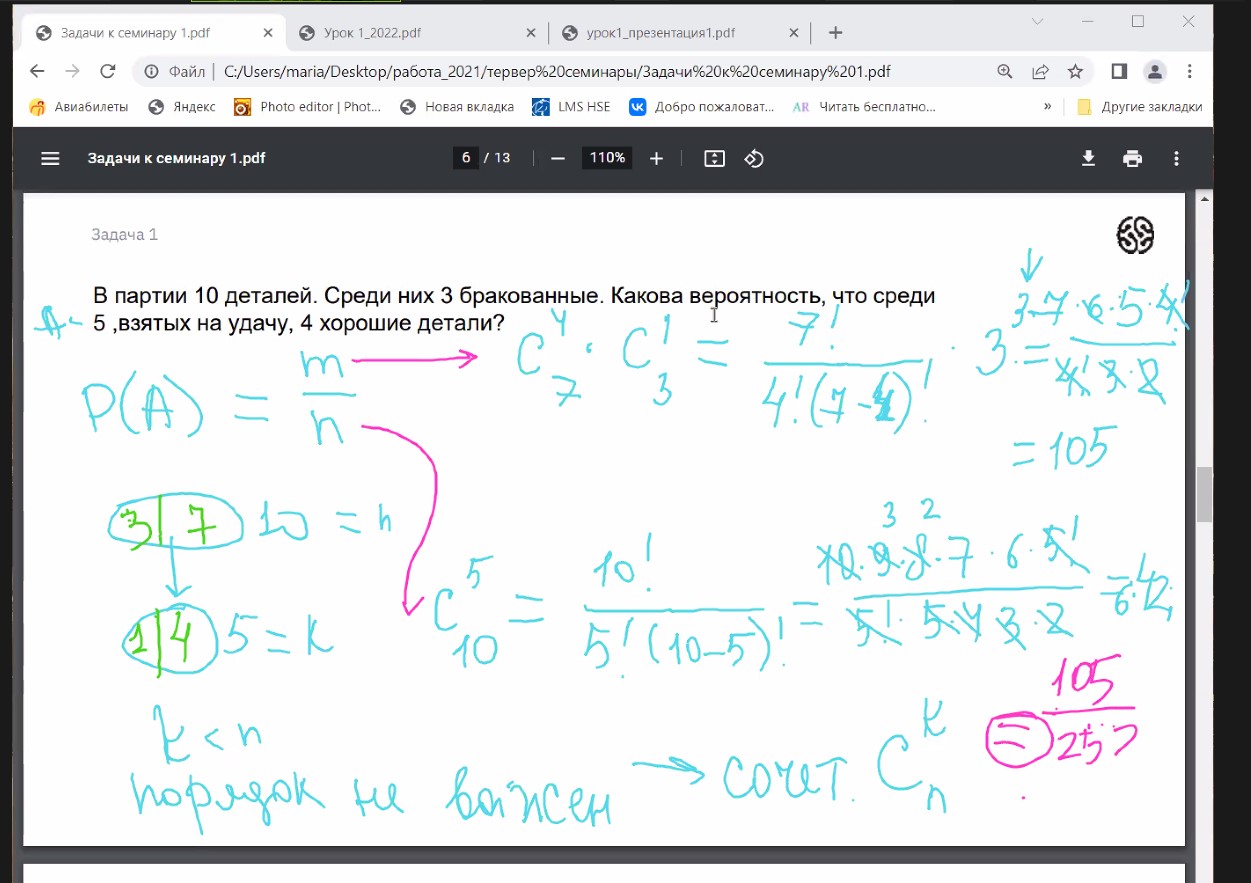 Задачи к семинару 1.pdf
Урок 1_2022.pdf
урок1_презентация1.pdf
Файл
C:/Users/maria/Desktop/работа_2021/тервер%20семинары/Задачи%20к%20семинару%201.pdf
Авиабилеты
Яндекс
Photo editor | Phot...
Новая вкладка
LMS HSE
Добро пожаловат...
AR Читать бесплатно...
»
Другие закладки
Задачи к семинару 1.pdf
6 / 13
110%
Задача 1
В партии 10 деталей. Среди них 3 бракованные. Какова вероятность, что среди
5 ,взятых на удачу, 4 хорошие детали?
A -
P(A) = m/n
C_7^4 · C_3^1 = 7!/4!(7-4)! · 3 = 3·7·6·5·4!/4!·3·2
= 105
3 | 7 10 = n
1 | 4 5 = k
C_10^5 = 10!/5!(10-5)! = 10·9·8·7·6·5!/5!·5·4·3·2 = 6·42
3 2
k < n
порядок не важен → сочет. C_n^k
= 105/252